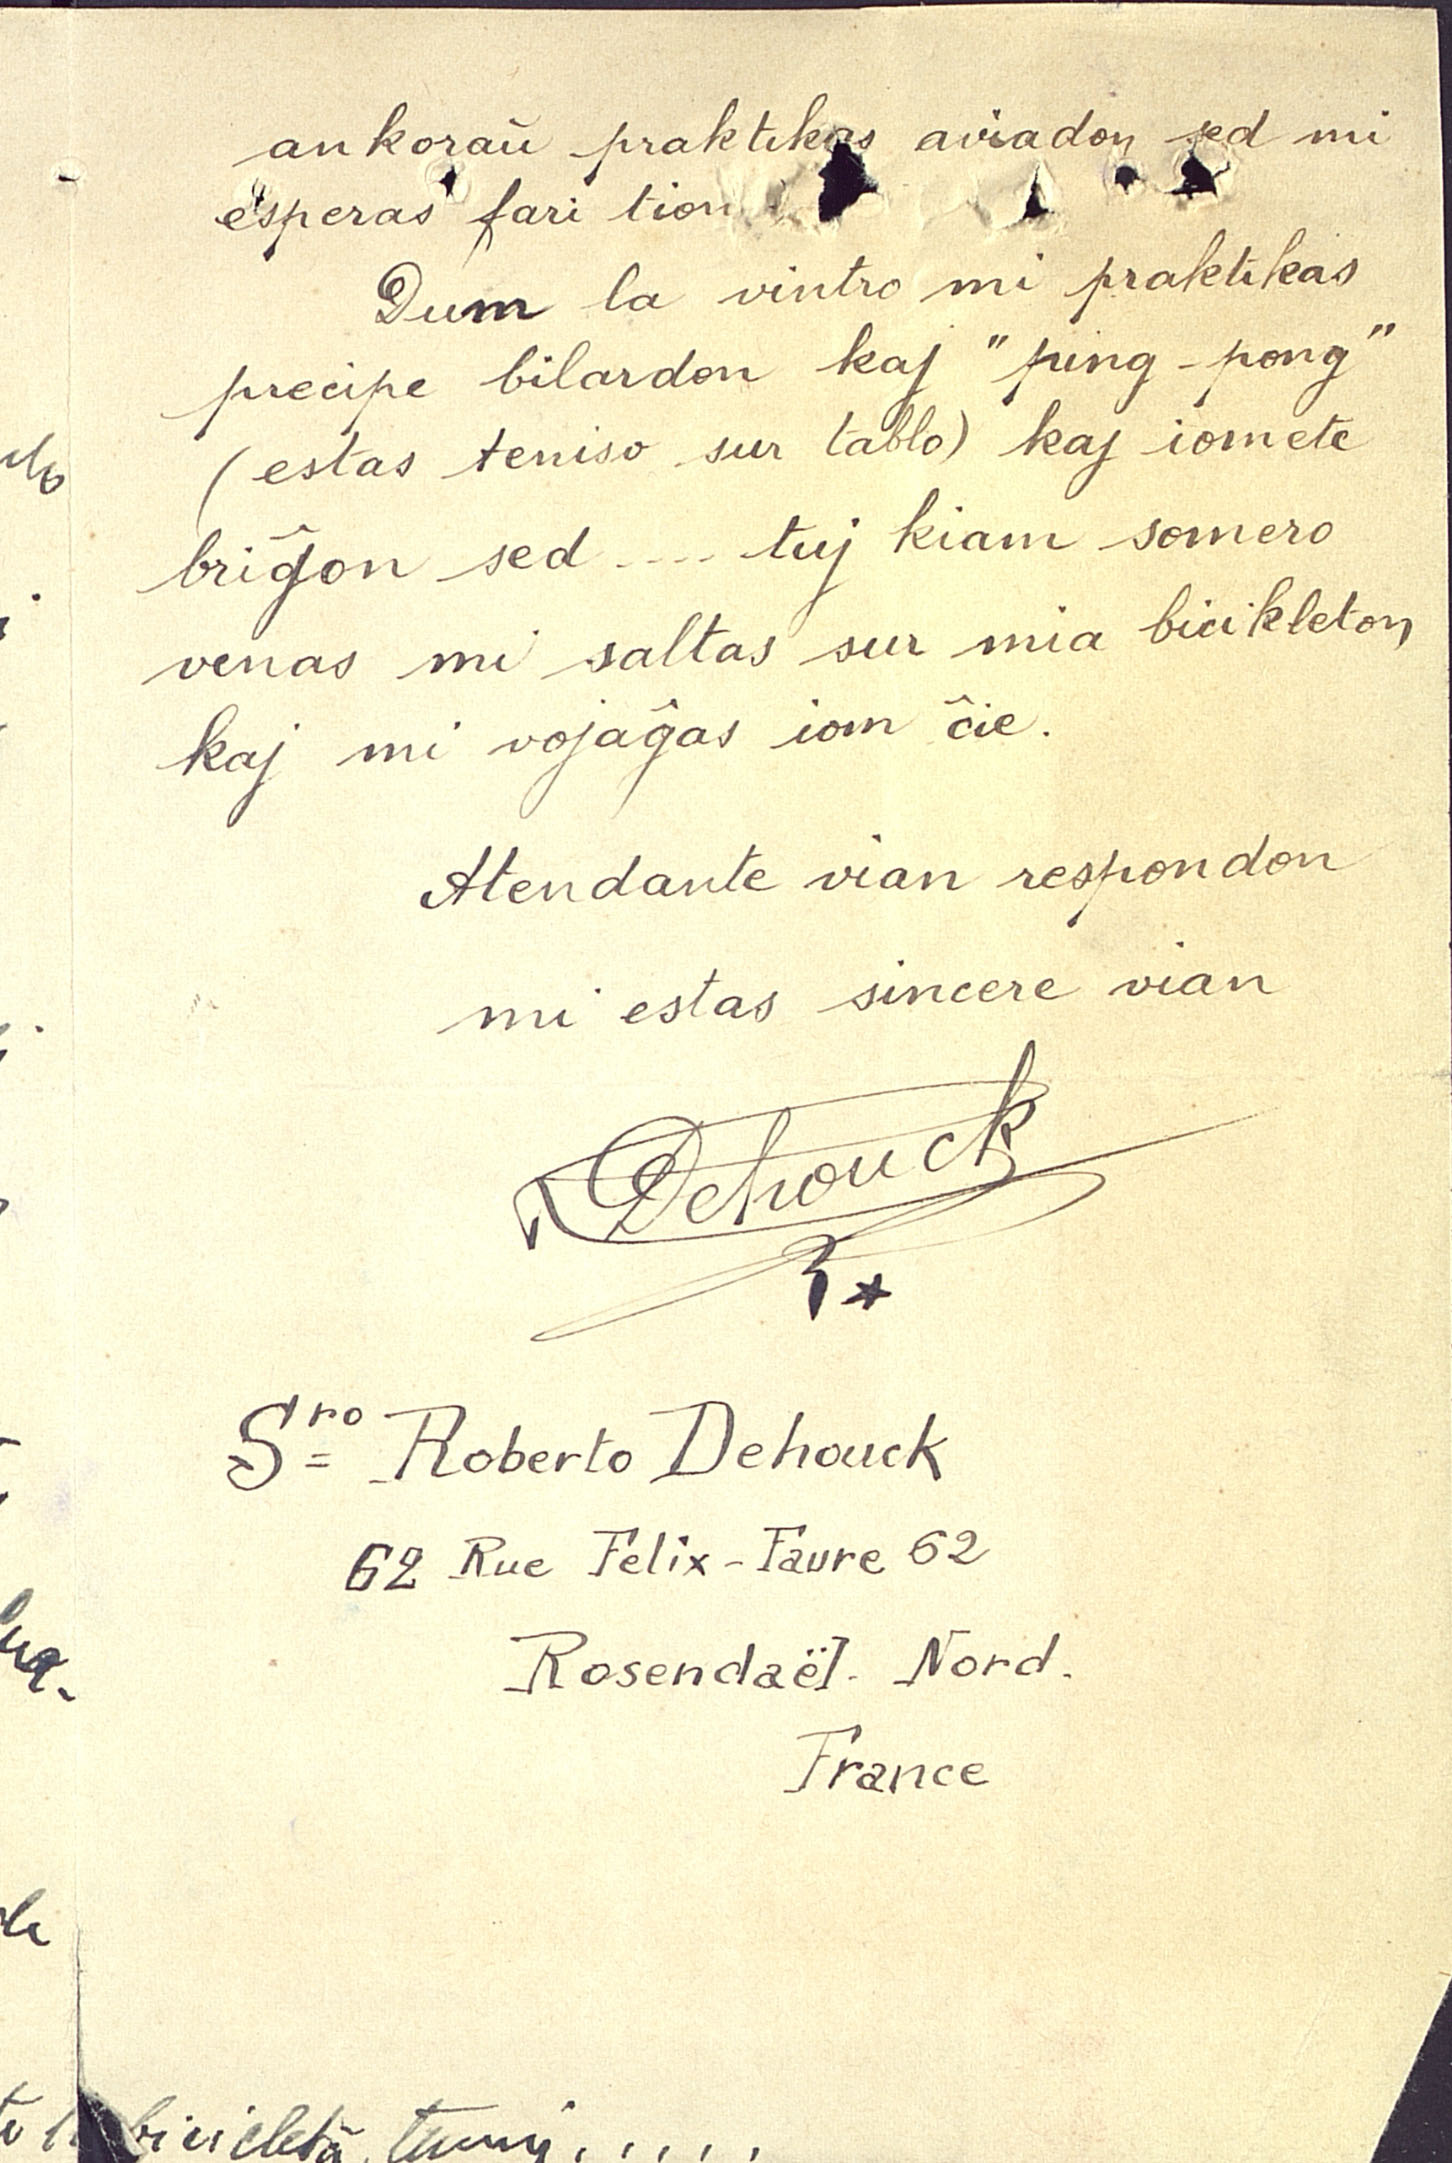 ankoraŭ praktikas aviadon sed mi
esperas fari tion
Dum la vintro mi praktikas
precipe bilardon kaj "ping-pong"
(estas teniso sur tablo) kaj iomete
briĝon sed .... tuj kiam somero
venas mi saltas sur mia bicikleton
kaj mi vojaĝas iom ĉie.
Atendante vian respondon
mi estas sincere vian
Dehouck
Sro Roberto Dehouck
62 Rue Felix-Favre 62
Rosendaël. Nord.
France